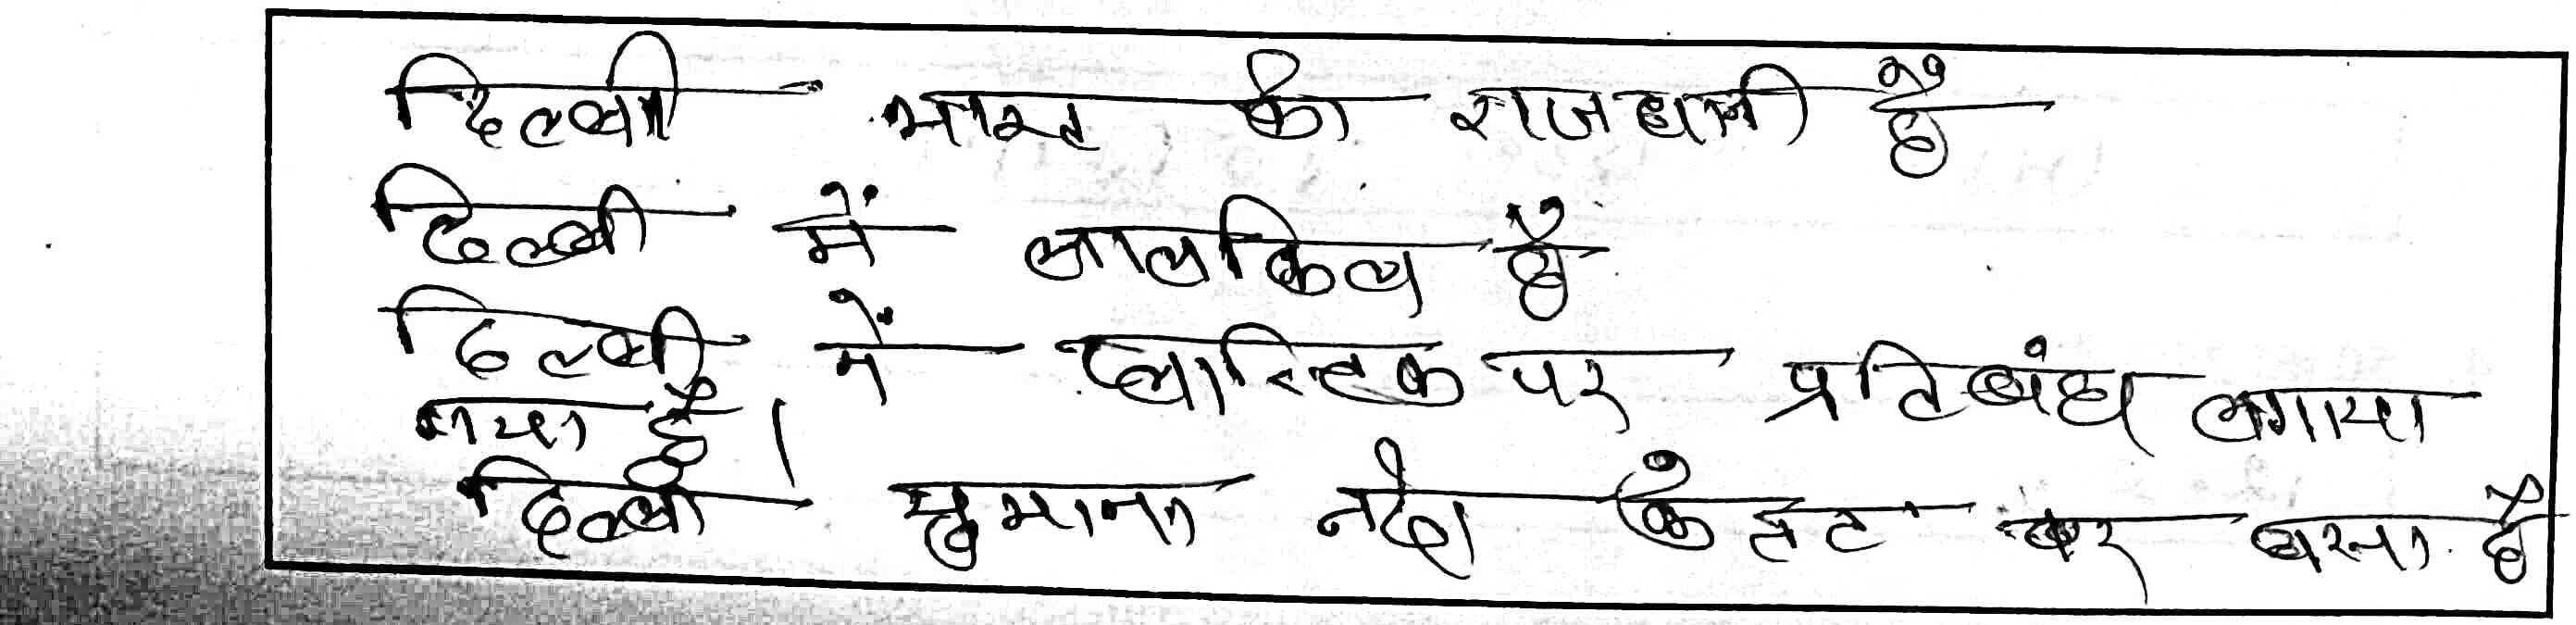 दिल्ली भारत की राजधानी है
दिल्ली में लालकिला है
दिल्ली में प्लास्टिक पर प्रतिबंध लगाया
गया है।
दिल्ली यमुना नदी के तट पर बसा है